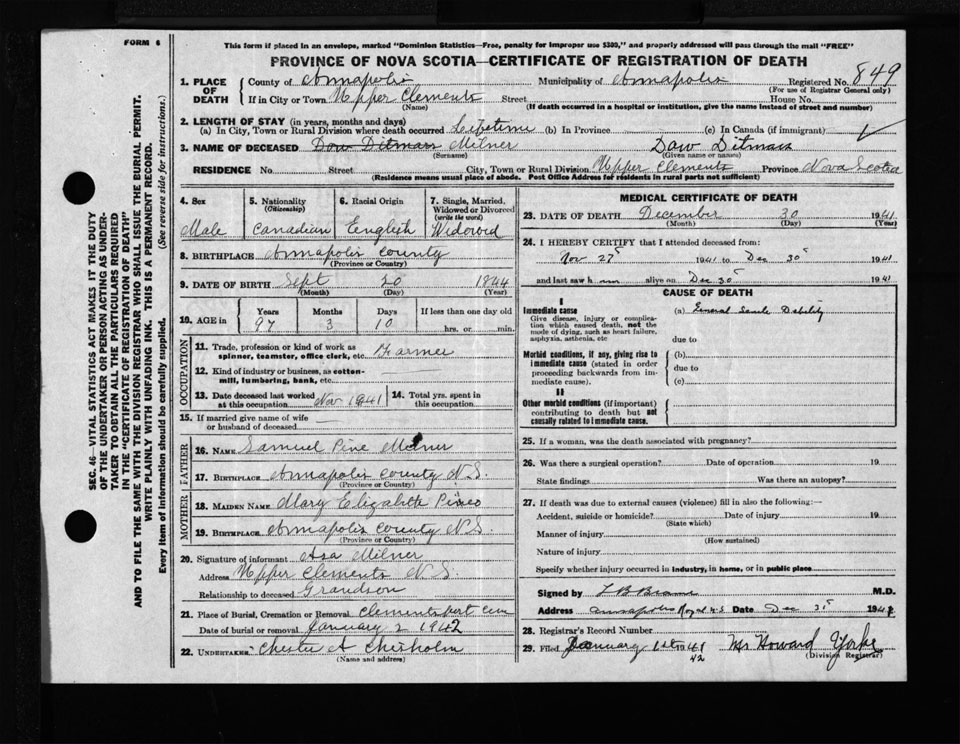 FORM 6
This form if placed in an envelope, marked "Dominion Statistics—Free, penalty for improper use $300," and properly addressed will pass through the mail "FREE"
PROVINCE OF NOVA SCOTIA—CERTIFICATE OF REGISTRATION OF DEATH
SEC. 46—VITAL STATISTICS ACT MAKES IT THE DUTY
OF THE UNDERTAKER OR PERSON ACTING AS UNDER-
TAKER TO OBTAIN ALL THE PARTICULARS REQUIRED
IN THE "CERTIFICATE OF REGISTRATION OF DEATH"
AND TO FILE THE SAME WITH THE DIVISION REGISTRAR WHO SHALL ISSUE THE BURIAL PERMIT.
WRITE PLAINLY WITH UNFADING INK. THIS IS A PERMANENT RECORD.
Every item of information should be carefully supplied. (See reverse side for instructions.)
1. PLACE OF DEATH County of Annapolis Municipality of Annapolis Registered No. 849
(For use of Registrar General only)
If in City or Town Upper Clements Street House No.
(Name) (If death occurred in a hospital or institution, give the name instead of street and number)
2. LENGTH OF STAY (in years, months and days)
(a) In City, Town or Rural Division where death occurred Lifetime (b) In Province (c) In Canada (if immigrant)
3. NAME OF DECEASED Dow Ditmars Milner Daw Ditmars
(Surname) (Given name or names)
RESIDENCE No. Street City, Town or Rural Division Upper Clements Province Nova Scotia
(Residence means usual place of abode. Post Office Address for residents in rural parts not sufficient)
4. Sex Male
5. Nationality (Citizenship) Canadian
6. Racial Origin English
7. Single, Married, Widowed or Divorced (write the word) Widowed
8. BIRTHPLACE Annapolis County
(Province or Country)
9. DATE OF BIRTH Sept 20 1844
(Month) (Day) (Year)
10. AGE in Years Months Days If less than one day old
97 3 10 hrs. or min.
OCCUPATION
11. Trade, profession or kind of work as
spinner, teamster, office clerk, etc. Farmer
12. Kind of industry or business, as cotton-
mill, lumbering, bank, etc.
13. Date deceased last worked at this occupation Nov 1941
14. Total yrs. spent in this occupation
15. If married give name of wife
or husband of deceased
FATHER
16. NAME Samuel Pine Milner
17. BIRTHPLACE Annapolis County N.S.
(Province or Country)
MOTHER
18. MAIDEN NAME Mary Elizabeth Pineo
19. BIRTHPLACE Annapolis County N.S.
(Province or Country)
20. Signature of informant Asa Milner
Address Upper Clements N.S.
Relationship to deceased Grandson
21. Place of Burial, Cremation or Removal Clementsport Cem
Date of burial or removal January 2 1942
22. UNDERTAKER Chester A Chisholm
(Name and address)
MEDICAL CERTIFICATE OF DEATH
23. DATE OF DEATH December 30 1941
(Month) (Day) (Year)
24. I HEREBY CERTIFY that I attended deceased from:
Nov 27 1941 to Dec 30 1941
and last saw h im alive on Dec 30 1941
CAUSE OF DEATH
I
Immediate cause
Give disease, injury or complica-
tion which caused death, not the
mode of dying, such as heart failure,
asphyxia, asthenia, etc
(a) General Senile Debility
due to
Morbid conditions, if any, giving rise to
immediate cause (stated in order
proceeding backwards from im-
mediate cause).
(b)
due to
(c)
II
Other morbid conditions (if important)
contributing to death but not
causally related to immediate cause.
25. If a woman, was the death associated with pregnancy?
26. Was there a surgical operation? Date of operation 19
State findings Was there an autopsy?
27. If death was due to external causes (violence) fill in also the following:—
Accident, suicide or homicide? Date of injury 19
(State which)
Manner of injury
(How sustained)
Nature of injury
Specify whether injury occurred in industry, in home, or in public place
Signed by L B Braine M.D.
Address Annapolis Royal N.S Date Dec 31 194
28. Registrar's Record Number
29. Filed January 1st 1941 42 Mr Howard Yorke
(Division Registrar)